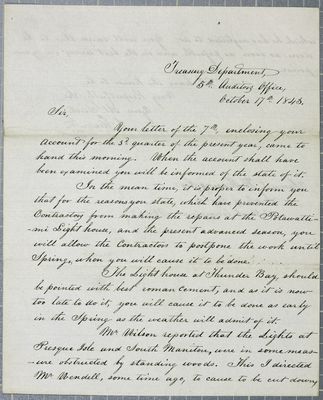 Treasury Department,
5th. Auditors Office,
October 17th. 1843.
Sir,
Your letter of the 7th, inclosing your
Account for the 3d quarter of the present year, came to
hand this morning. When the account shall have
been examined you will be informed of the state of it.
In the mean time, it is proper to inform you
that for the reasons you state, which have prevented the
Contractors from making the repairs at the Potawatta-
mi Light house, and the present advanced season, you
will allow the Contractors to postpone the work until
Spring, when you will cause it to be done.
The Light house at Thunder Bay, should
be pointed with best roman cement, and as it is now
too late to do it, you will cause it to be done as early
in the Spring as the weather will admit of it.
Mr Wilson reported that the Lights at
Presque Isle and South Manitou, were in some meas-
-ure obstructed by standing woods. This I directed
Mr Wendell, some time ago, to cause to be cut down,